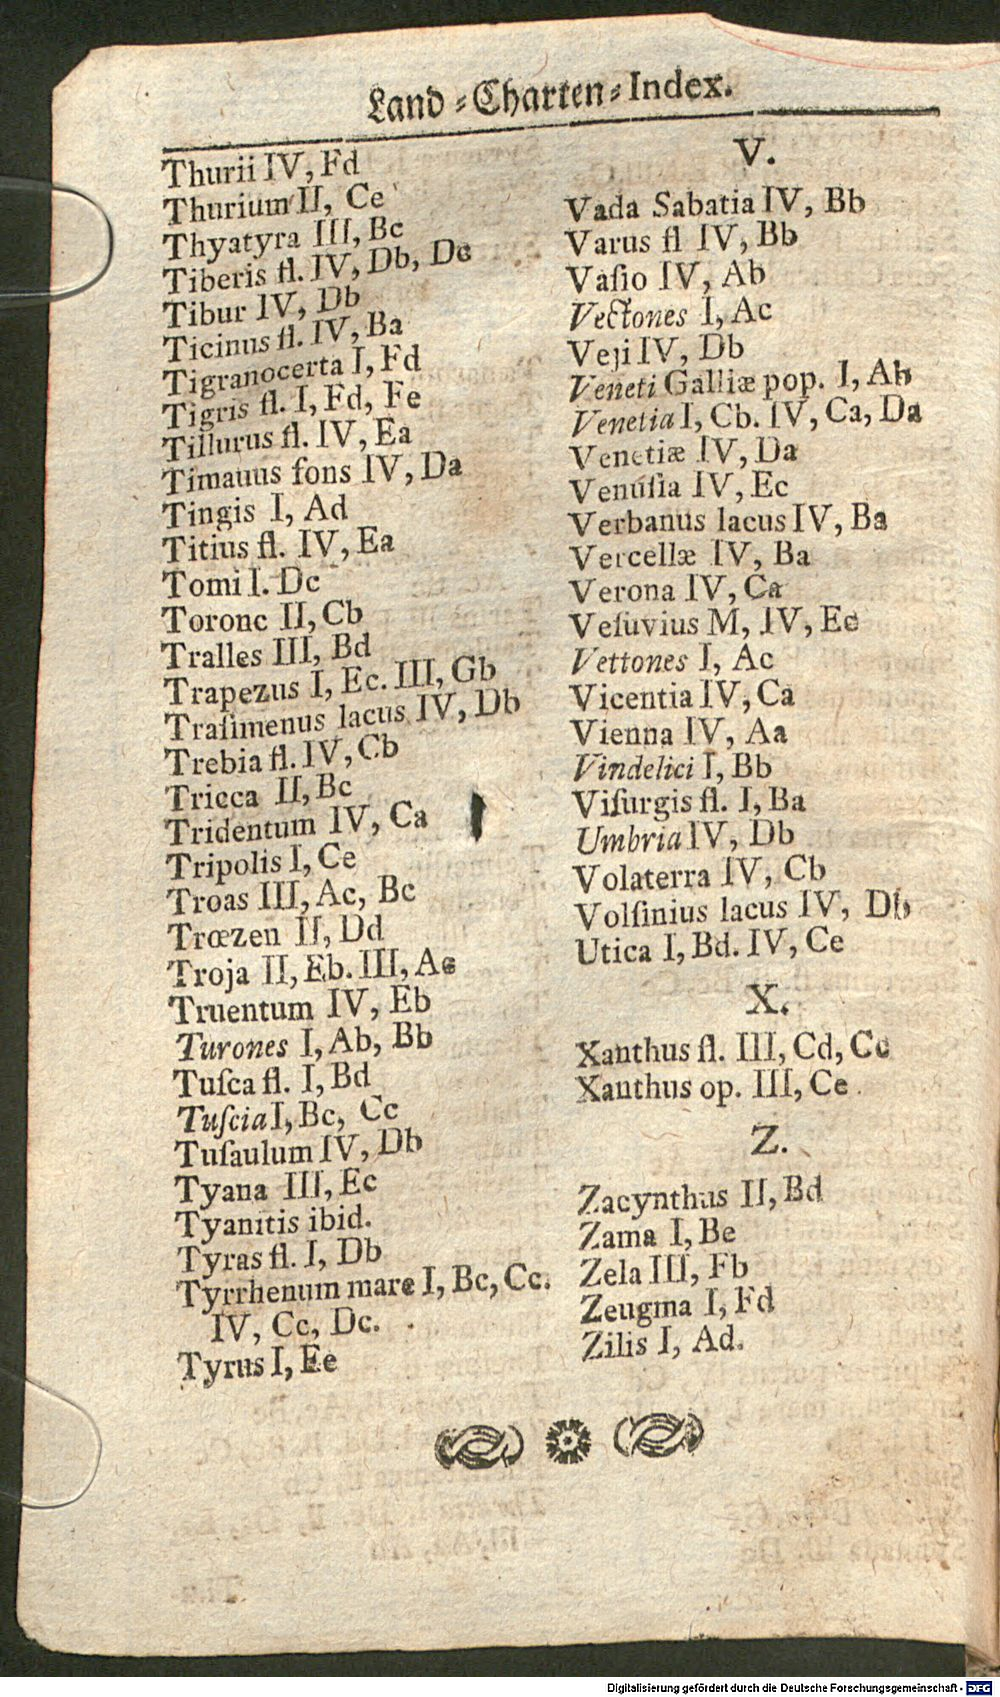 Land-Charten-Index.
Thurii IV, Fd
Thurium II, Ce
Thyatyra III, Bc
Tiberis fl. IV, Db, Dc
Tibur IV, Db
Ticinus fl. IV, Ba
Tigranocerta I, Fd
Tigris fl. I, Fd, Fe
Tillurus fl. IV, Ea
Timauus fons IV, Da
Tingis I, Ad
Titius fl. IV, Ea
Tomi I. Dc
Torone II, Cb
Tralles III, Bd
Trapezus I, Ec. III, Gb
Traſimenus lacus IV, Db
Trebia fl. IV, Cb
Tricca II, Bc
Tridentum IV, Ca
Tripolis I, Ce
Troas III, Ac, Bc
Trœzen II, Dd
Troja II, Eb. III, Ac
Truentum IV, Eb
Turones I, Ab, Bb
Tuſca fl. I, Bd
Tuſcia I, Bc, Cc
Tuſaulum IV, Db
Tyana III, Ec
Tyanitis ibid.
Tyras fl. I, Db
Tyrrhenum mare I, Bc, Cc.
IV, Cc, Dc.
Tyrus I, Ee
V.
Vada Sabatia IV, Bb
Varus fl IV, Bb
Vaſio IV, Ab
Vectones I, Ac
Veji IV, Db
Veneti Galliæ pop. I, Ab
Venetia I, Cb. IV, Ca, Da
Venetiæ IV, Da
Venuſia IV, Ec
Verbanus lacus IV, Ba
Vercellæ IV, Ba
Verona IV, Ca
Veſuvius M, IV, Ec
Vettones I, Ac
Vicentia IV, Ca
Vienna IV, Aa
Vindelici I, Bb
Viſurgis fl. I, Ba
Umbria IV, Db
Volaterra IV, Cb
Volſinius lacus IV, Db
Utica I, Bd. IV, Ce
X.
Xanthus fl. III, Cd, Cc
Xanthus op. III, Ce
Z.
Zacynthus II, Bd
Zama I, Be
Zela III, Fb
Zeugma I, Fd
Zilis I, Ad.
Digitalisierung gefördert durch die Deutsche Forschungsgemeinschaft - DFG